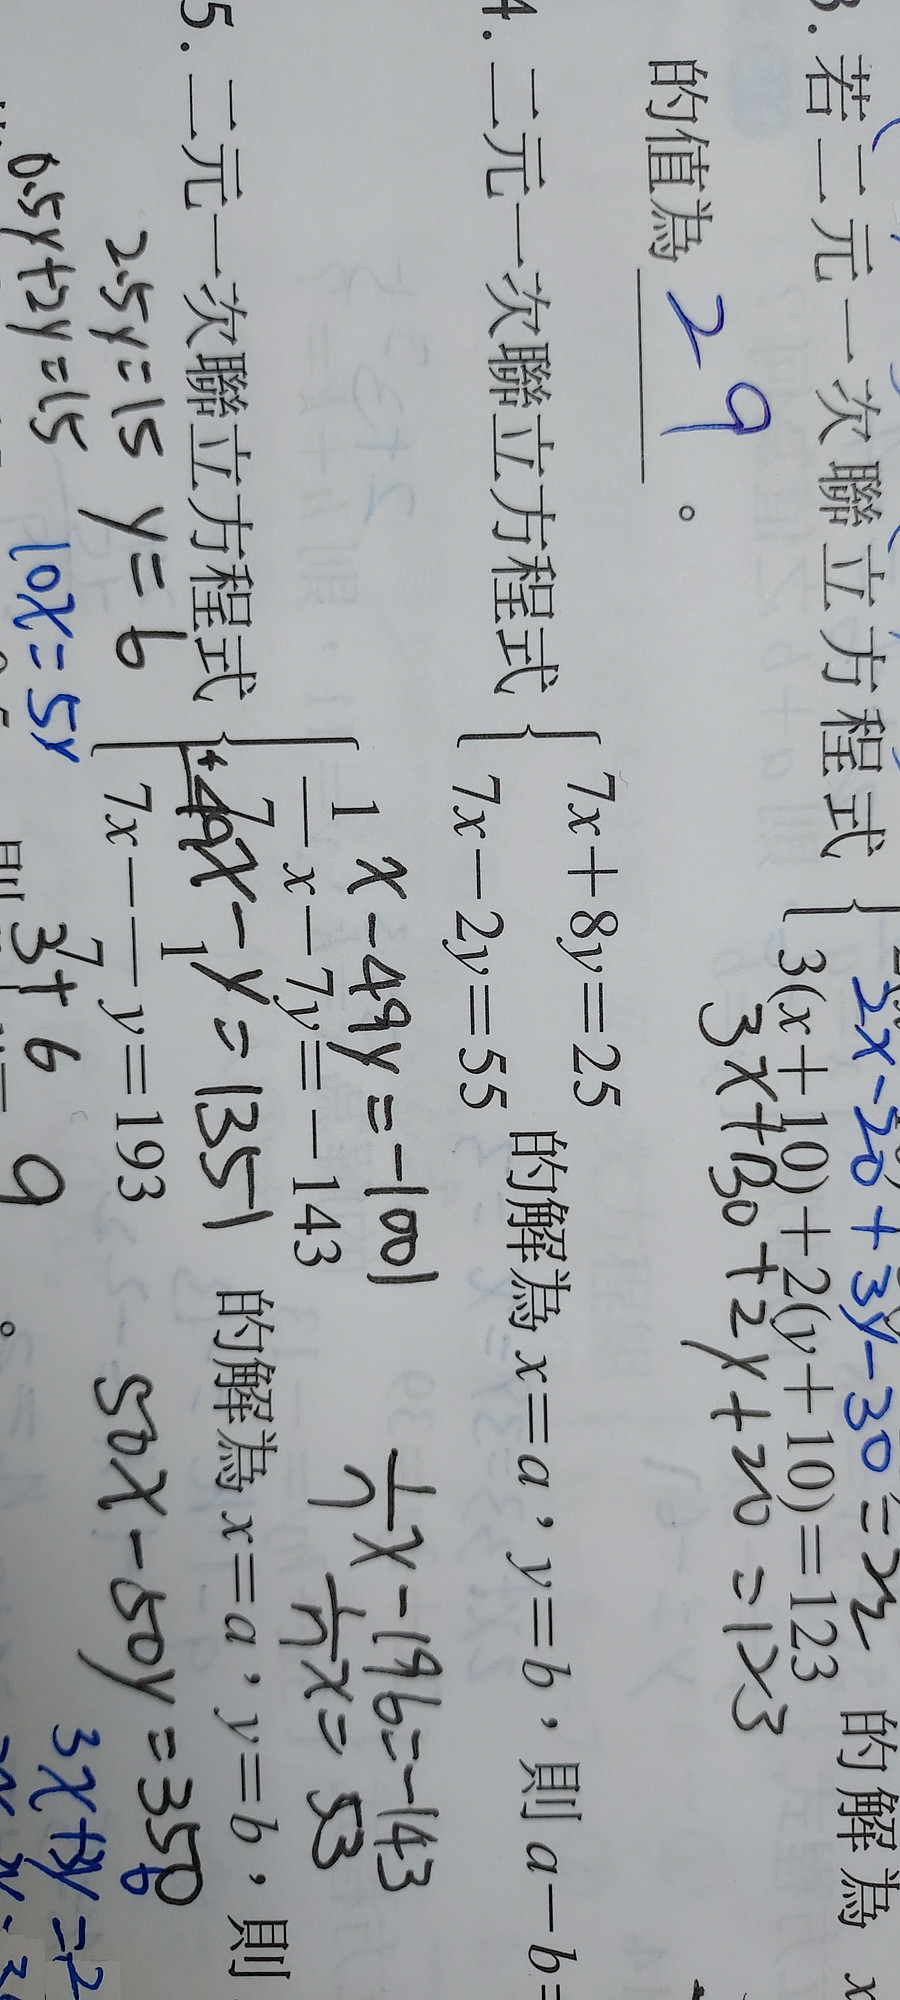 3. 若二元一次聯立方程式
2x-20+3y-30=
3(x+10)+2(y+10)=123
3x+30+2y+20=123
的解為 x
的值為 29 。
4. 二元一次聯立方程式
7x+8y=25
7x-2y=55
的解為 x=a,y=b,則 a-b=
x-49y=-1001
5. 二元一次聯立方程式
1/7 x-7y=-143
7x-1/7 y=193
的解為 x=a,y=b,則
49x-y=1351
1/7 x-196=-143
1/7 x=53
50x-50y=350
2.5y=15 y=6
0.5y+2y=15
10x=5y
則
3+6
9
。